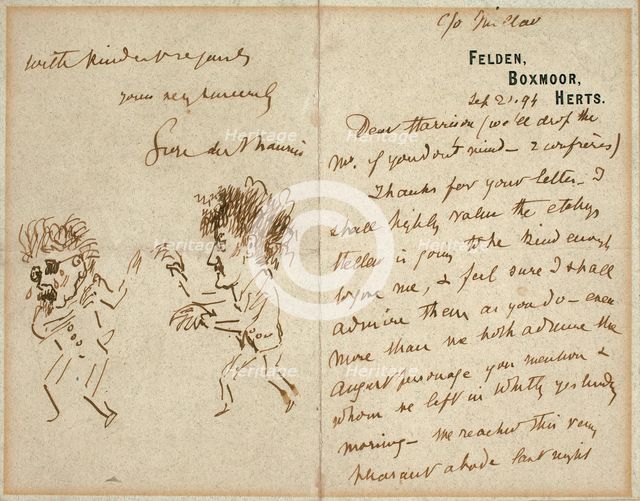 FELDEN,
BOXMOOR,
HERTS.
Sep 21. 94
Dear Harrison (we'll drop the
Mr. if you don't mind - 2 confrères)
Thanks for your letter - I
shall highly value the etchings
Helleu is going to be kind enough
to give me, & feel sure I shall
admire them as you do - even
more than we both admire the
august personage you mention &
whom we left in Whitby yesterday
morning - We reached this very
pleasant abode last night
with kindest regards
yours very sincerely
Heritage